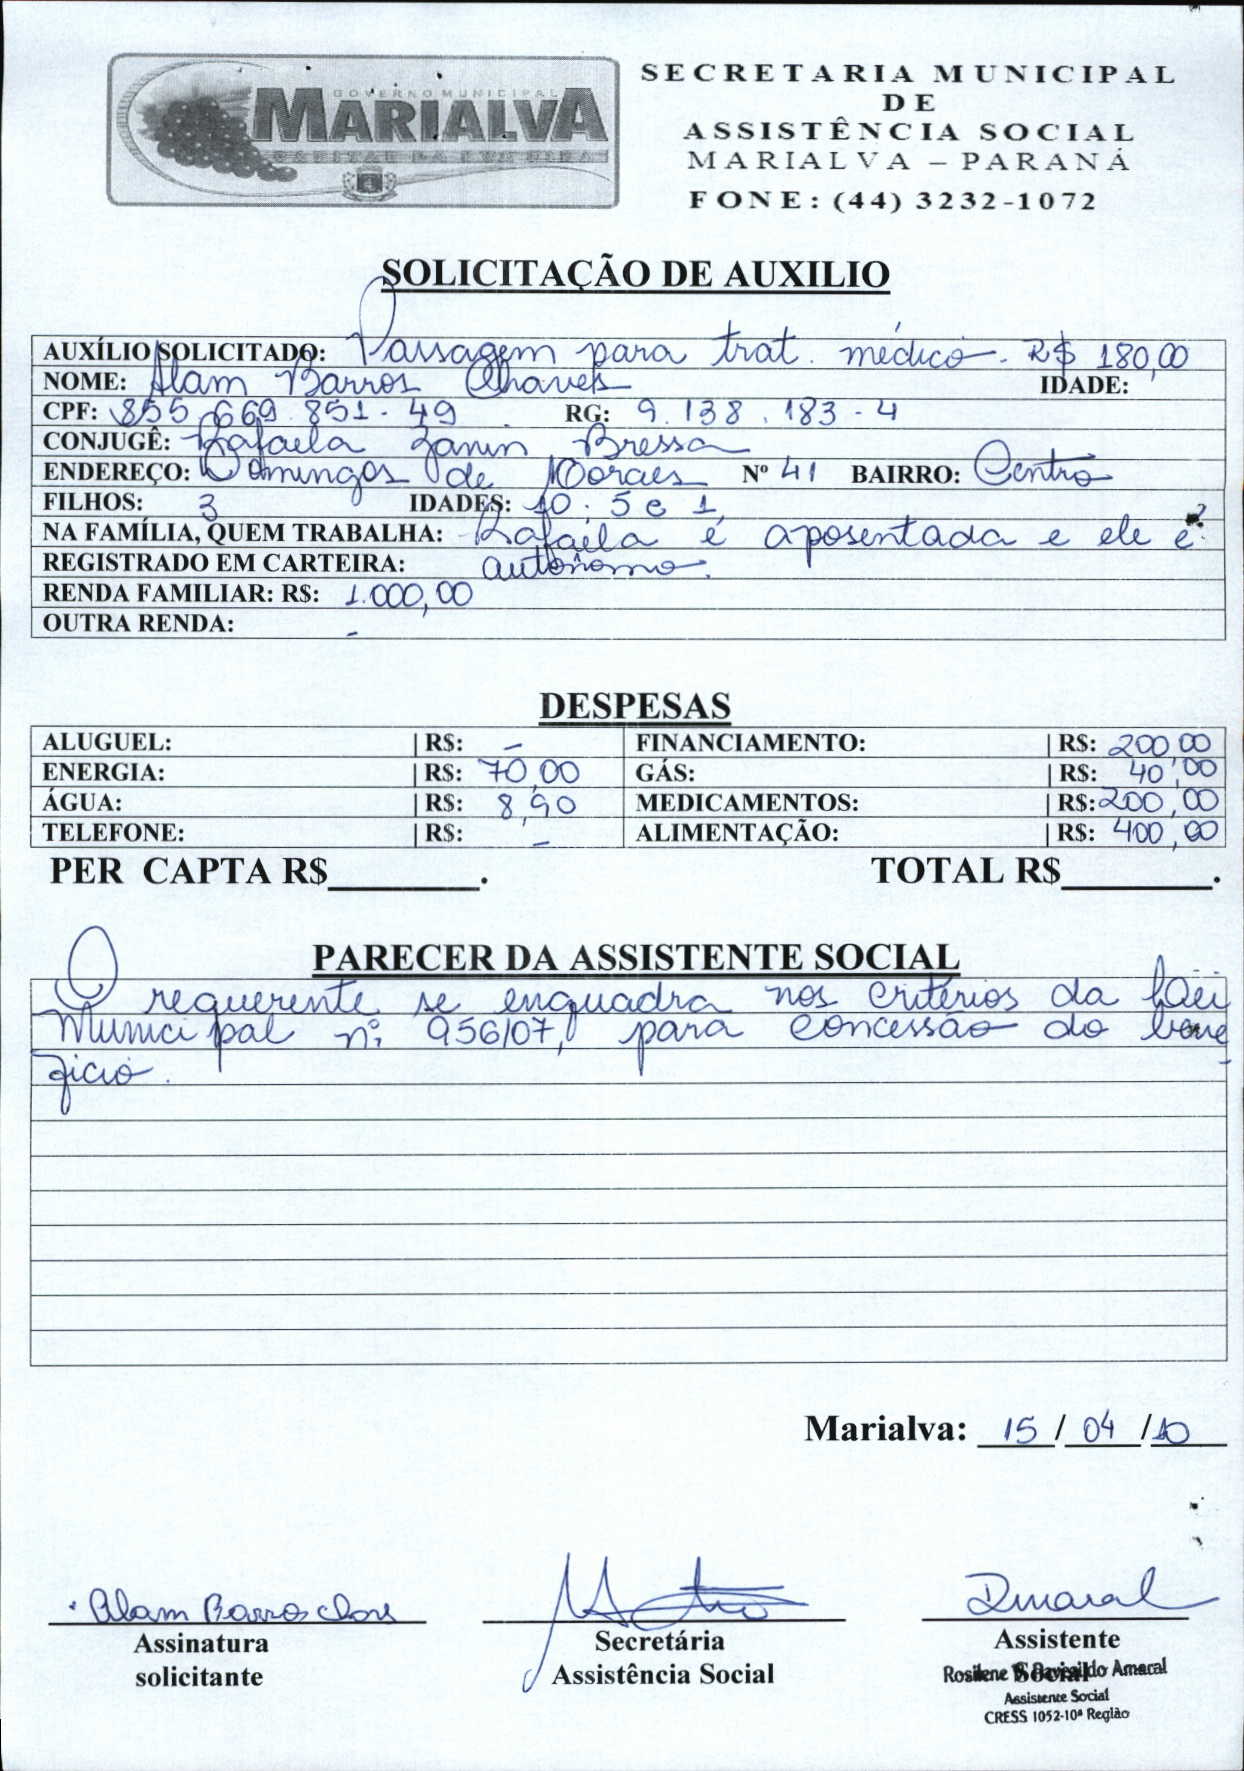 GOVERNO MUNICIPAL
MARIALVA
CAPITAL DA UVA FINA
SECRETARIA MUNICIPAL
DE
ASSISTÊNCIA SOCIAL
MARIALVA – PARANÁ
FONE: (44) 3232-1072
SOLICITAÇÃO DE AUXILIO
AUXÍLIO SOLICITADO: Passagem para trat. médico. R$ 180,00
NOME: Alam Barros Chaves IDADE:
CPF: 855.669.851-49 RG: 9.138.183-4
CONJUGÊ: Rafaela Zanin Bressa
ENDEREÇO: Domingos de Moraes Nº 41 BAIRRO: Centro
FILHOS: 3 IDADES: 10; 5 e 1
NA FAMÍLIA, QUEM TRABALHA: Rafaela é aposentada e ele é
REGISTRADO EM CARTEIRA: autônomo.
RENDA FAMILIAR: R$: 1.000,00
OUTRA RENDA: -
DESPESAS
ALUGUEL: | R$: - FINANCIAMENTO: | R$: 200,00
ENERGIA: | R$: 70,00 GÁS: | R$: 40,00
ÁGUA: | R$: 8,90 MEDICAMENTOS: | R$: 200,00
TELEFONE: | R$: - ALIMENTAÇÃO: | R$: 400,00
PER CAPTA R$________. TOTAL R$________.
PARECER DA ASSISTENTE SOCIAL
O requerente se enquadra nos critérios da Lei
Municipal nº 956/07, para concessão do bene
fício.
Marialva: 15 / 04 / 10
Alam Barros Amaral
Assinatura Secretária Assistente
solicitante Assistência Social Social
Rosilene do Amaral
Assistente Social
CRESS 1052-10ª Região